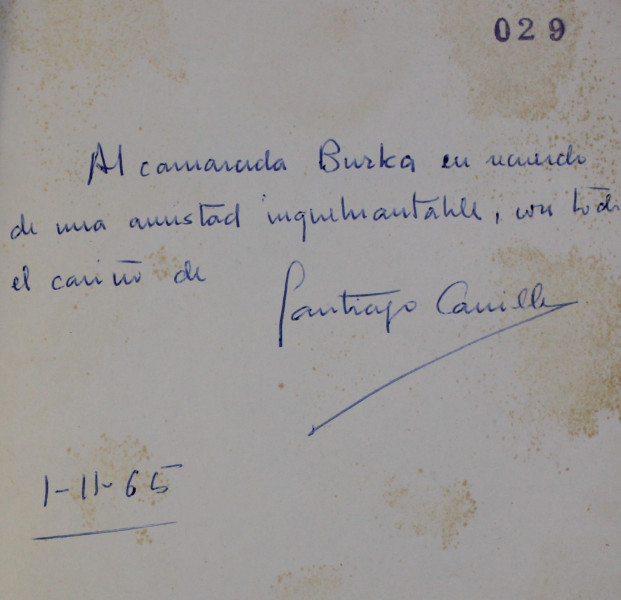 029
Al camarada Burka en recuerdo
de una amistad inquebrantable, con todo
el cariño de
Santiago Carrillo
1-11-65